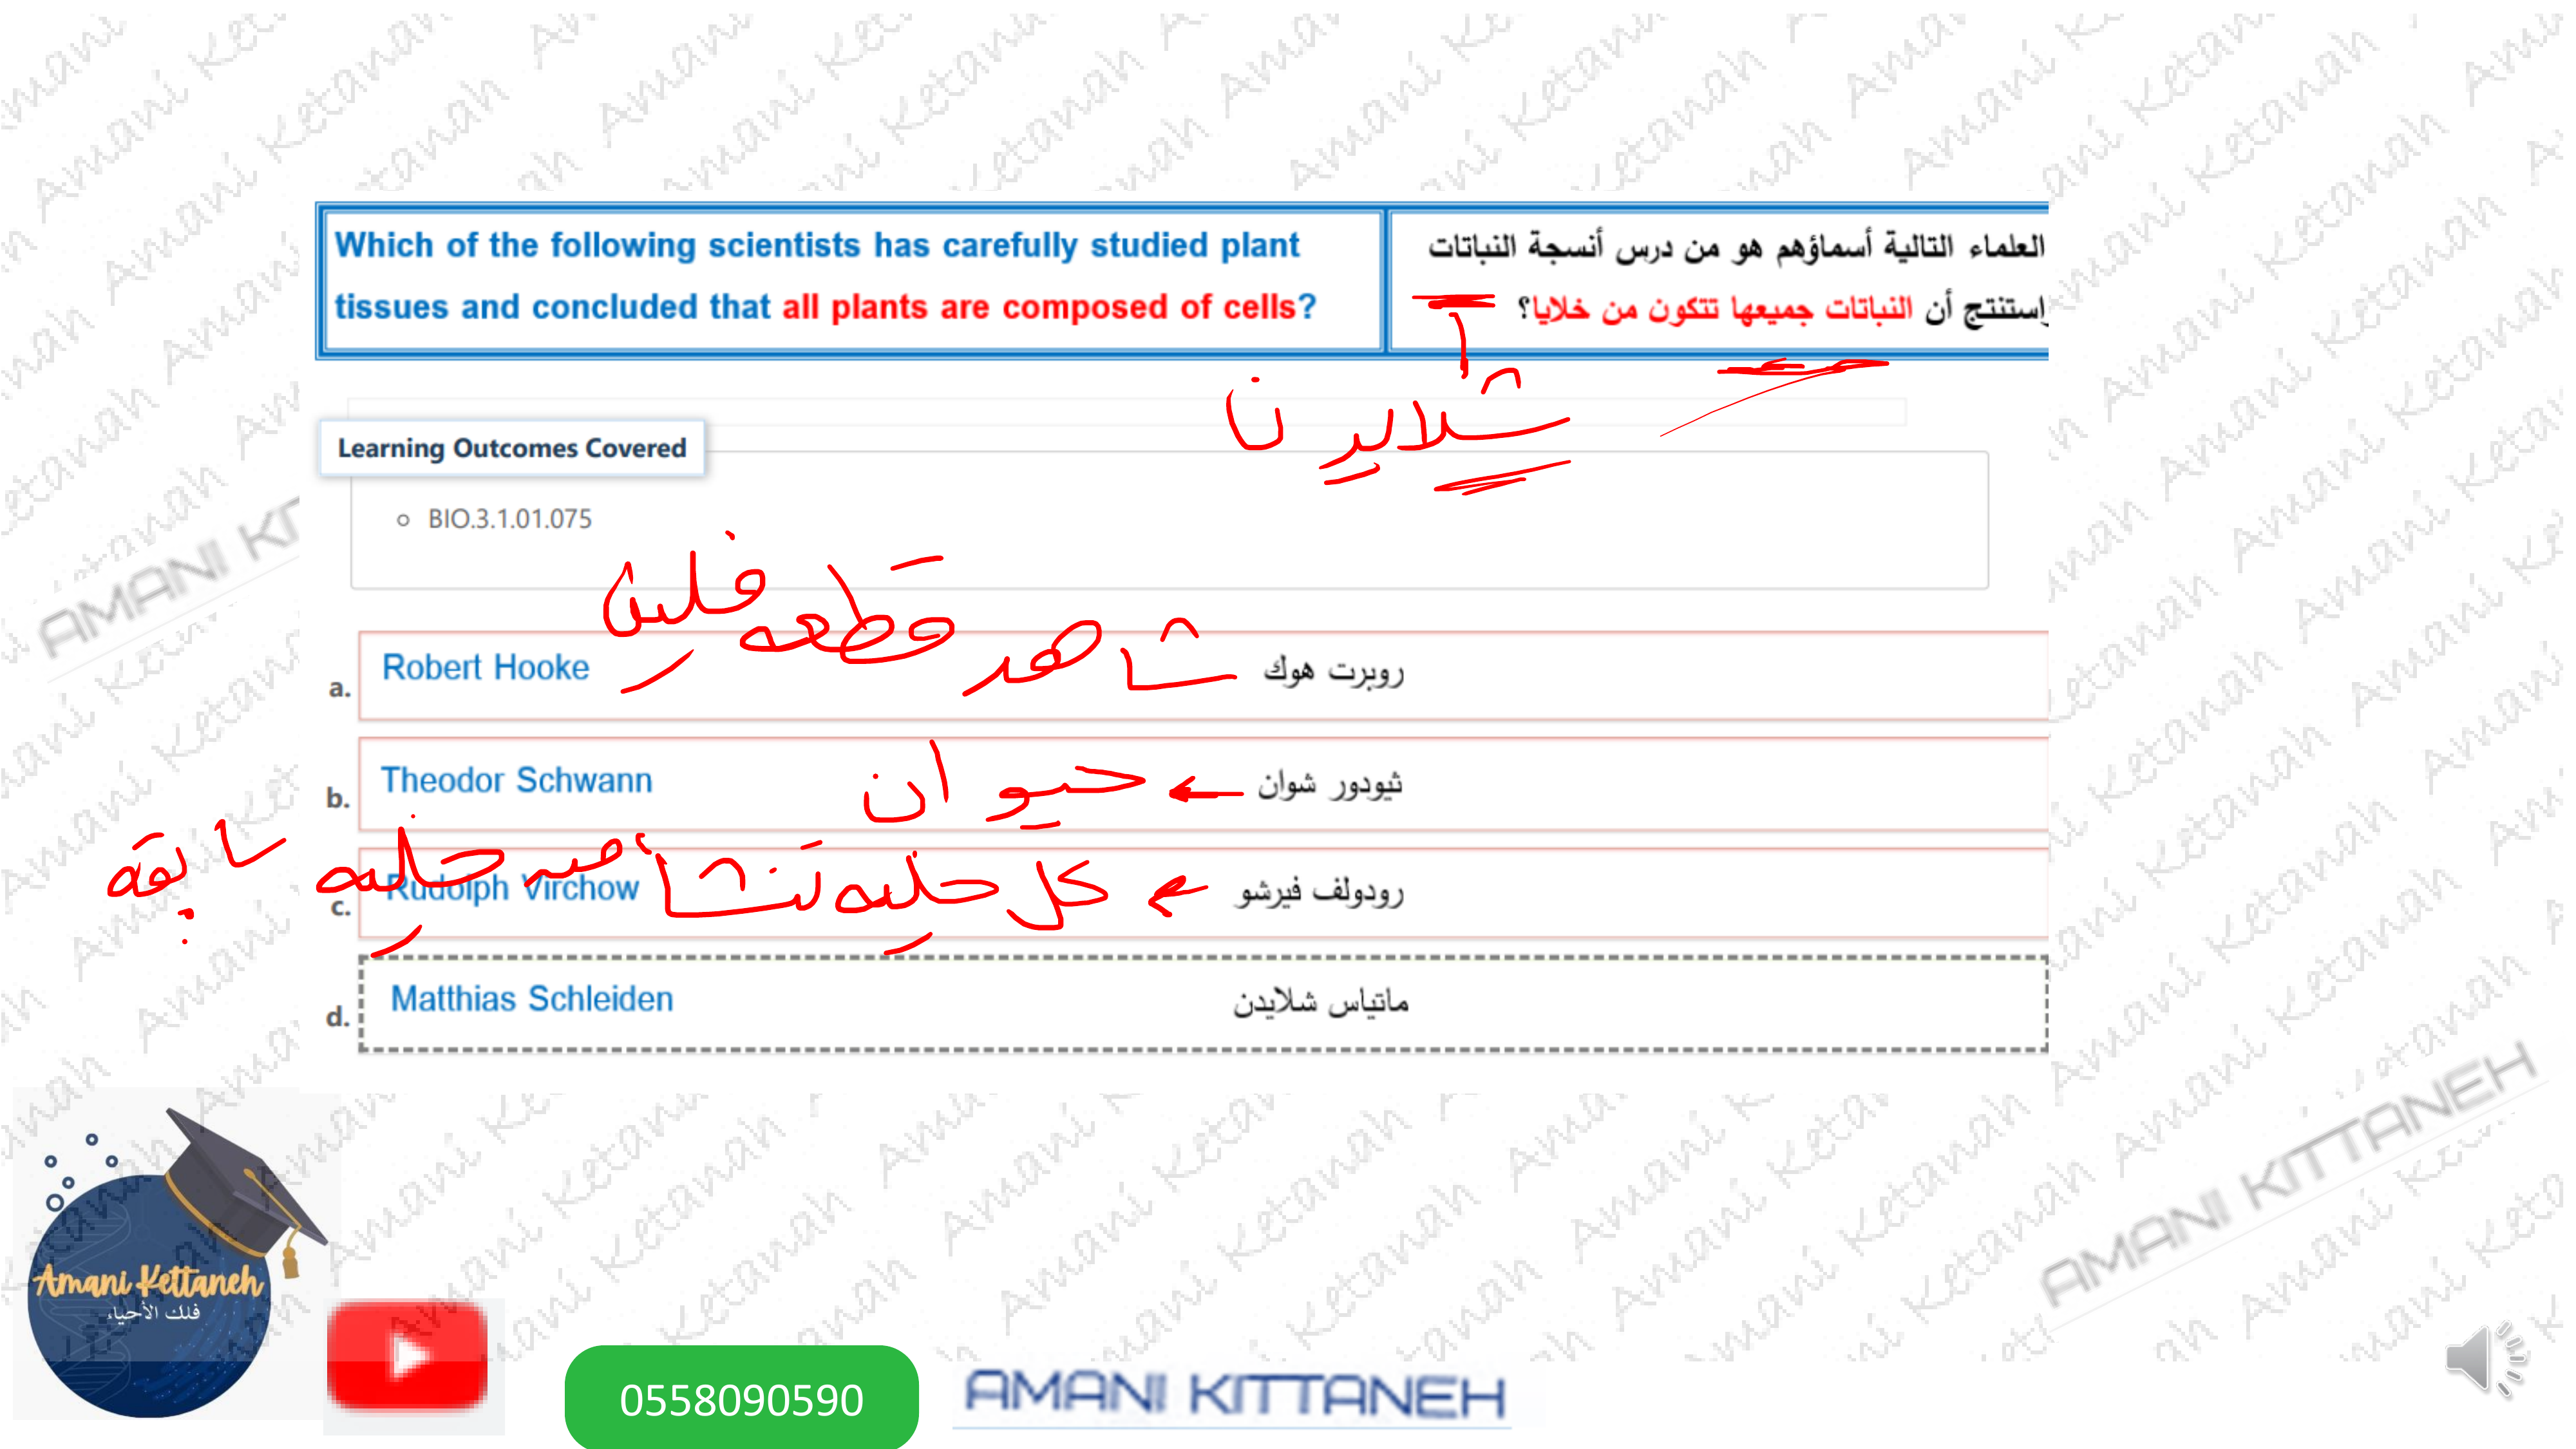 Which of the following scientists has carefully studied plant
tissues and concluded that all plants are composed of cells?
العلماء التالية أسماؤهم هو من درس أنسجة النباتات
إستنتج أن النباتات جميعها تتكون من خلايا؟
شلايدن
Learning Outcomes Covered
BIO.3.1.01.075
شاهد قطعه فلين
a. Robert Hooke روبرت هوك
b. Theodor Schwann ثيودور شوان
حيوان
c. Rudolph Virchow رودولف فيرشو
كل خليه تنشأ من خليه سابقه
d. Matthias Schleiden ماتياس شلايدن
Amani Kettaneh
فلك الأحياء
0558090590
AMANI KITTANEH
AMANI KITTANEH